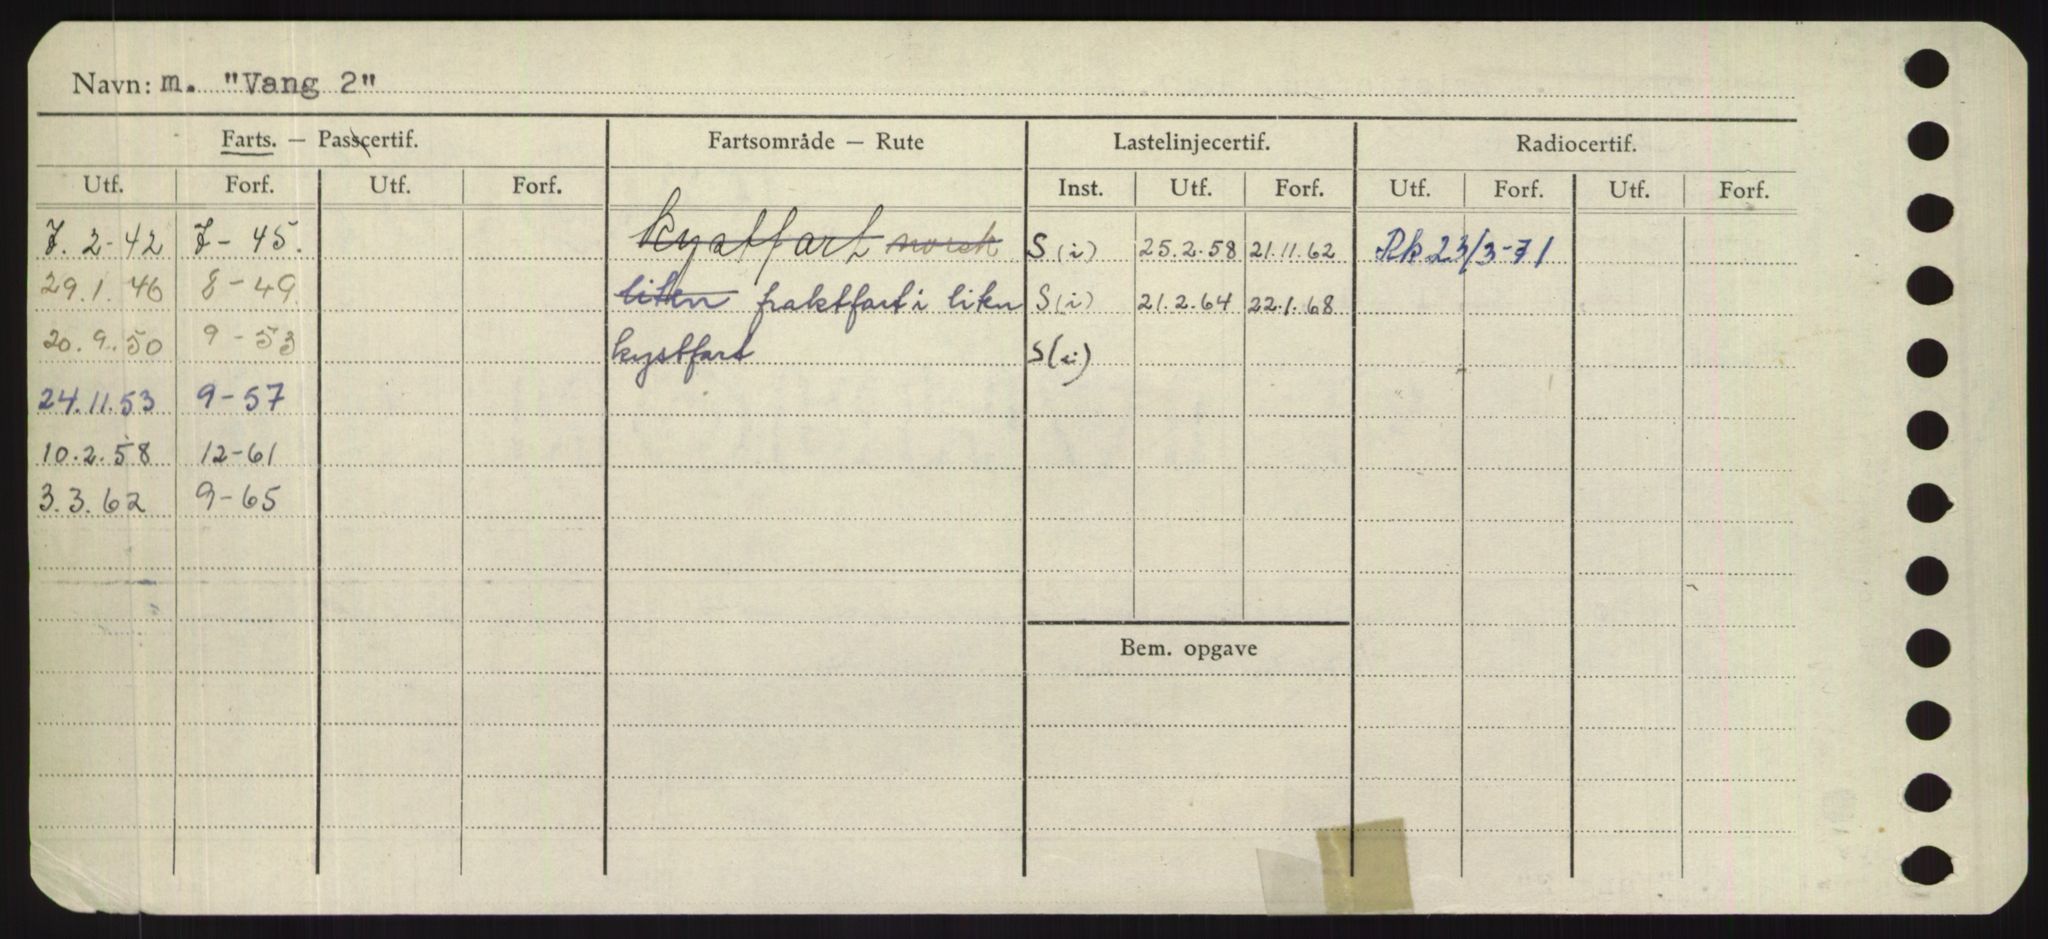 Navn: m. "Vang 2"
Farts. — Passcertif. Fartsområde — Rute Lastelinjecertif. Radiocertif.
Utf. Forf. Utf. Forf. Inst. Utf. Forf. Utf. Forf. Utf. Forf.
7. 2-42 7-45. kystfart norsk S (i) 25.2.58 21.11.62 Rk 23/3-71
29.1.46 8-49 liten fraktfart i liten S (i) 21.2.64 22.1.68
20.9.50 9-53 kystfart S (i)
24.11.53 9-57
10.2.58 12-61
3.3.62 9-65
Bem. opgave